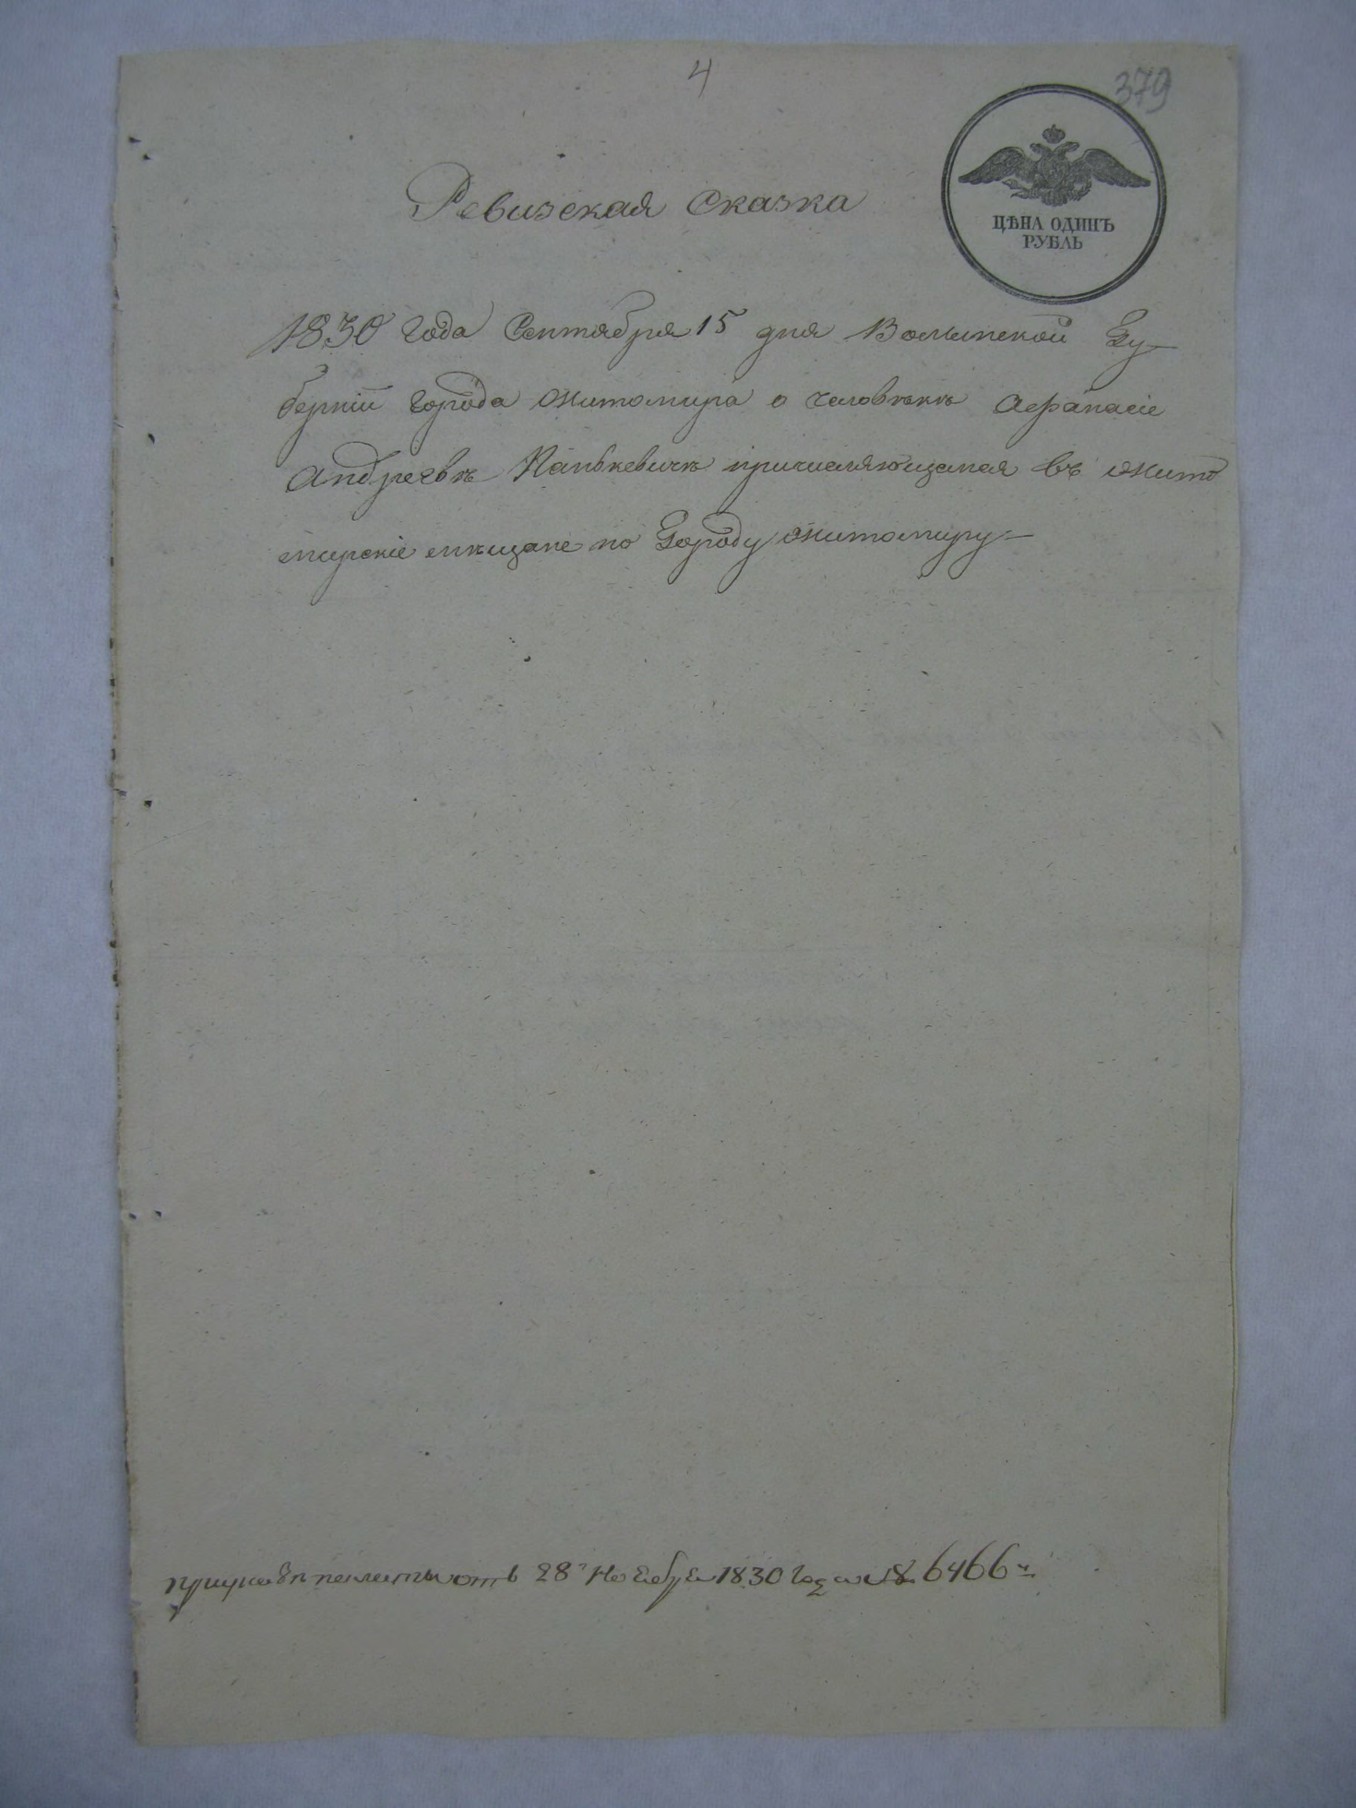 4
379
ЦѢНА ОДИНЪ
РУБЛЬ
Ревизская Сказка
1830 года Сентября 15 дня Волынской Гу-
берніи города Житомира о человѣкѣ Афанасіе
Андреевѣ Панькевичѣ причисляющемся въ Жито
мирскіе мѣщане по Городу Житомиру
отъ 28 Ноября 1830 года № 6466